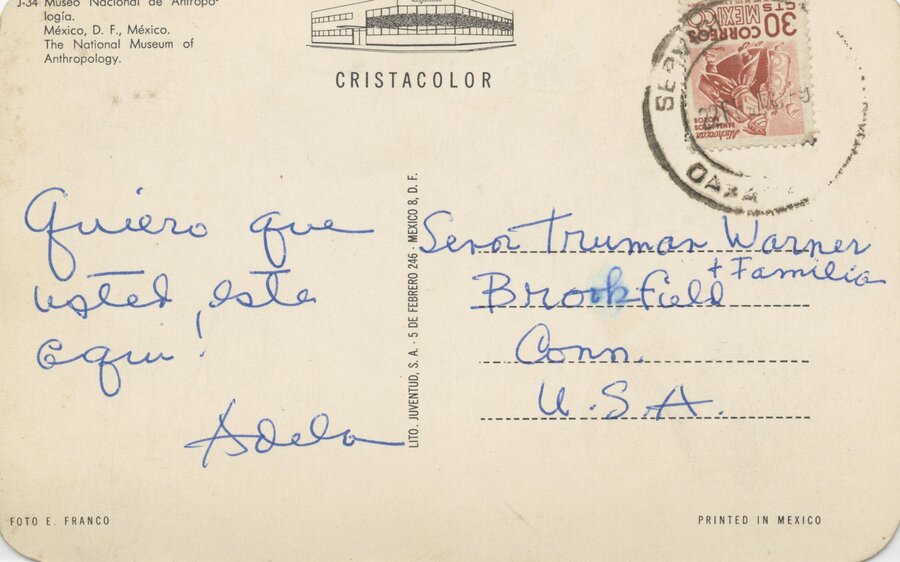 J-34 Museo Nacional de Antropo-
logía.
México, D. F., México.
The National Museum of
Anthropology.
CRISTACOLOR
30
CTS
CORREOS
MEXICO
Michoacan
DANZA DE LOS
MOROS
OAXA
Quiero que
usted, este
aqui!
Adela
LITO. JUVENTUD, S. A. - 5 DE FEBRERO 246 - MEXICO 8, D. F.
Senor Truman Warner
+ Familia
Brookfield
Conn.
U.S.A.
FOTO E. FRANCO
PRINTED IN MEXICO